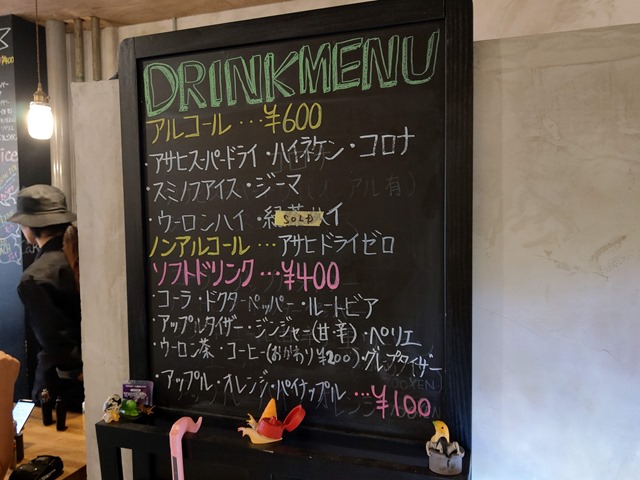 DRINKMENU
アルコール…¥600
・アサヒスーパードライ・ハイネケン・コロナ
・スミノフアイス・ジーマ
・ウーロンハイ・緑茶ハイ
SOLD
ノンアルコール…アサヒドライゼロ
ソフトドリンク…¥400
・コーラ・ドクターペッパー・ルートビア
・アップルタイザー・ジンジャー(甘・辛)・ペリエ
・ウーロン茶・コーヒー(おかわり¥200)・グレープタイザー
・アップル・オレンジ・パイナップル…¥100